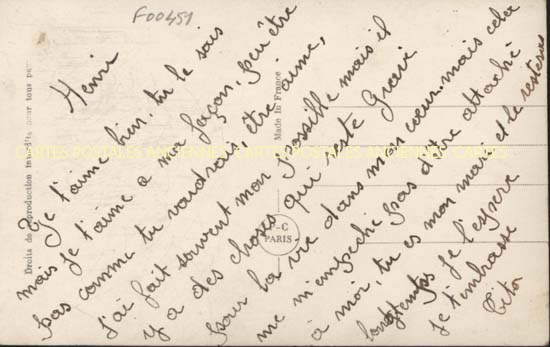 F00451
Henri
Je t'aime bien, tu le sais
mais je t'aime à ma façon, peu être
pas comme tu voudrais être aimé,
J'ai fait souvent mon possible mais il
y a des choses qui reste Gravé
pour la vie dans mon cœur. mais cela
me m'empeche pas d'être attaché
à moi, tu es mon mari et le resteras
longtemps je l'espere
Je t'embrasse
Droits de reproduction interdits pour tous pays
Made in France
P-C
PARIS
CARTES POSTALES ANCIENNES CARTES POSTALES ANCIENNES CARTES